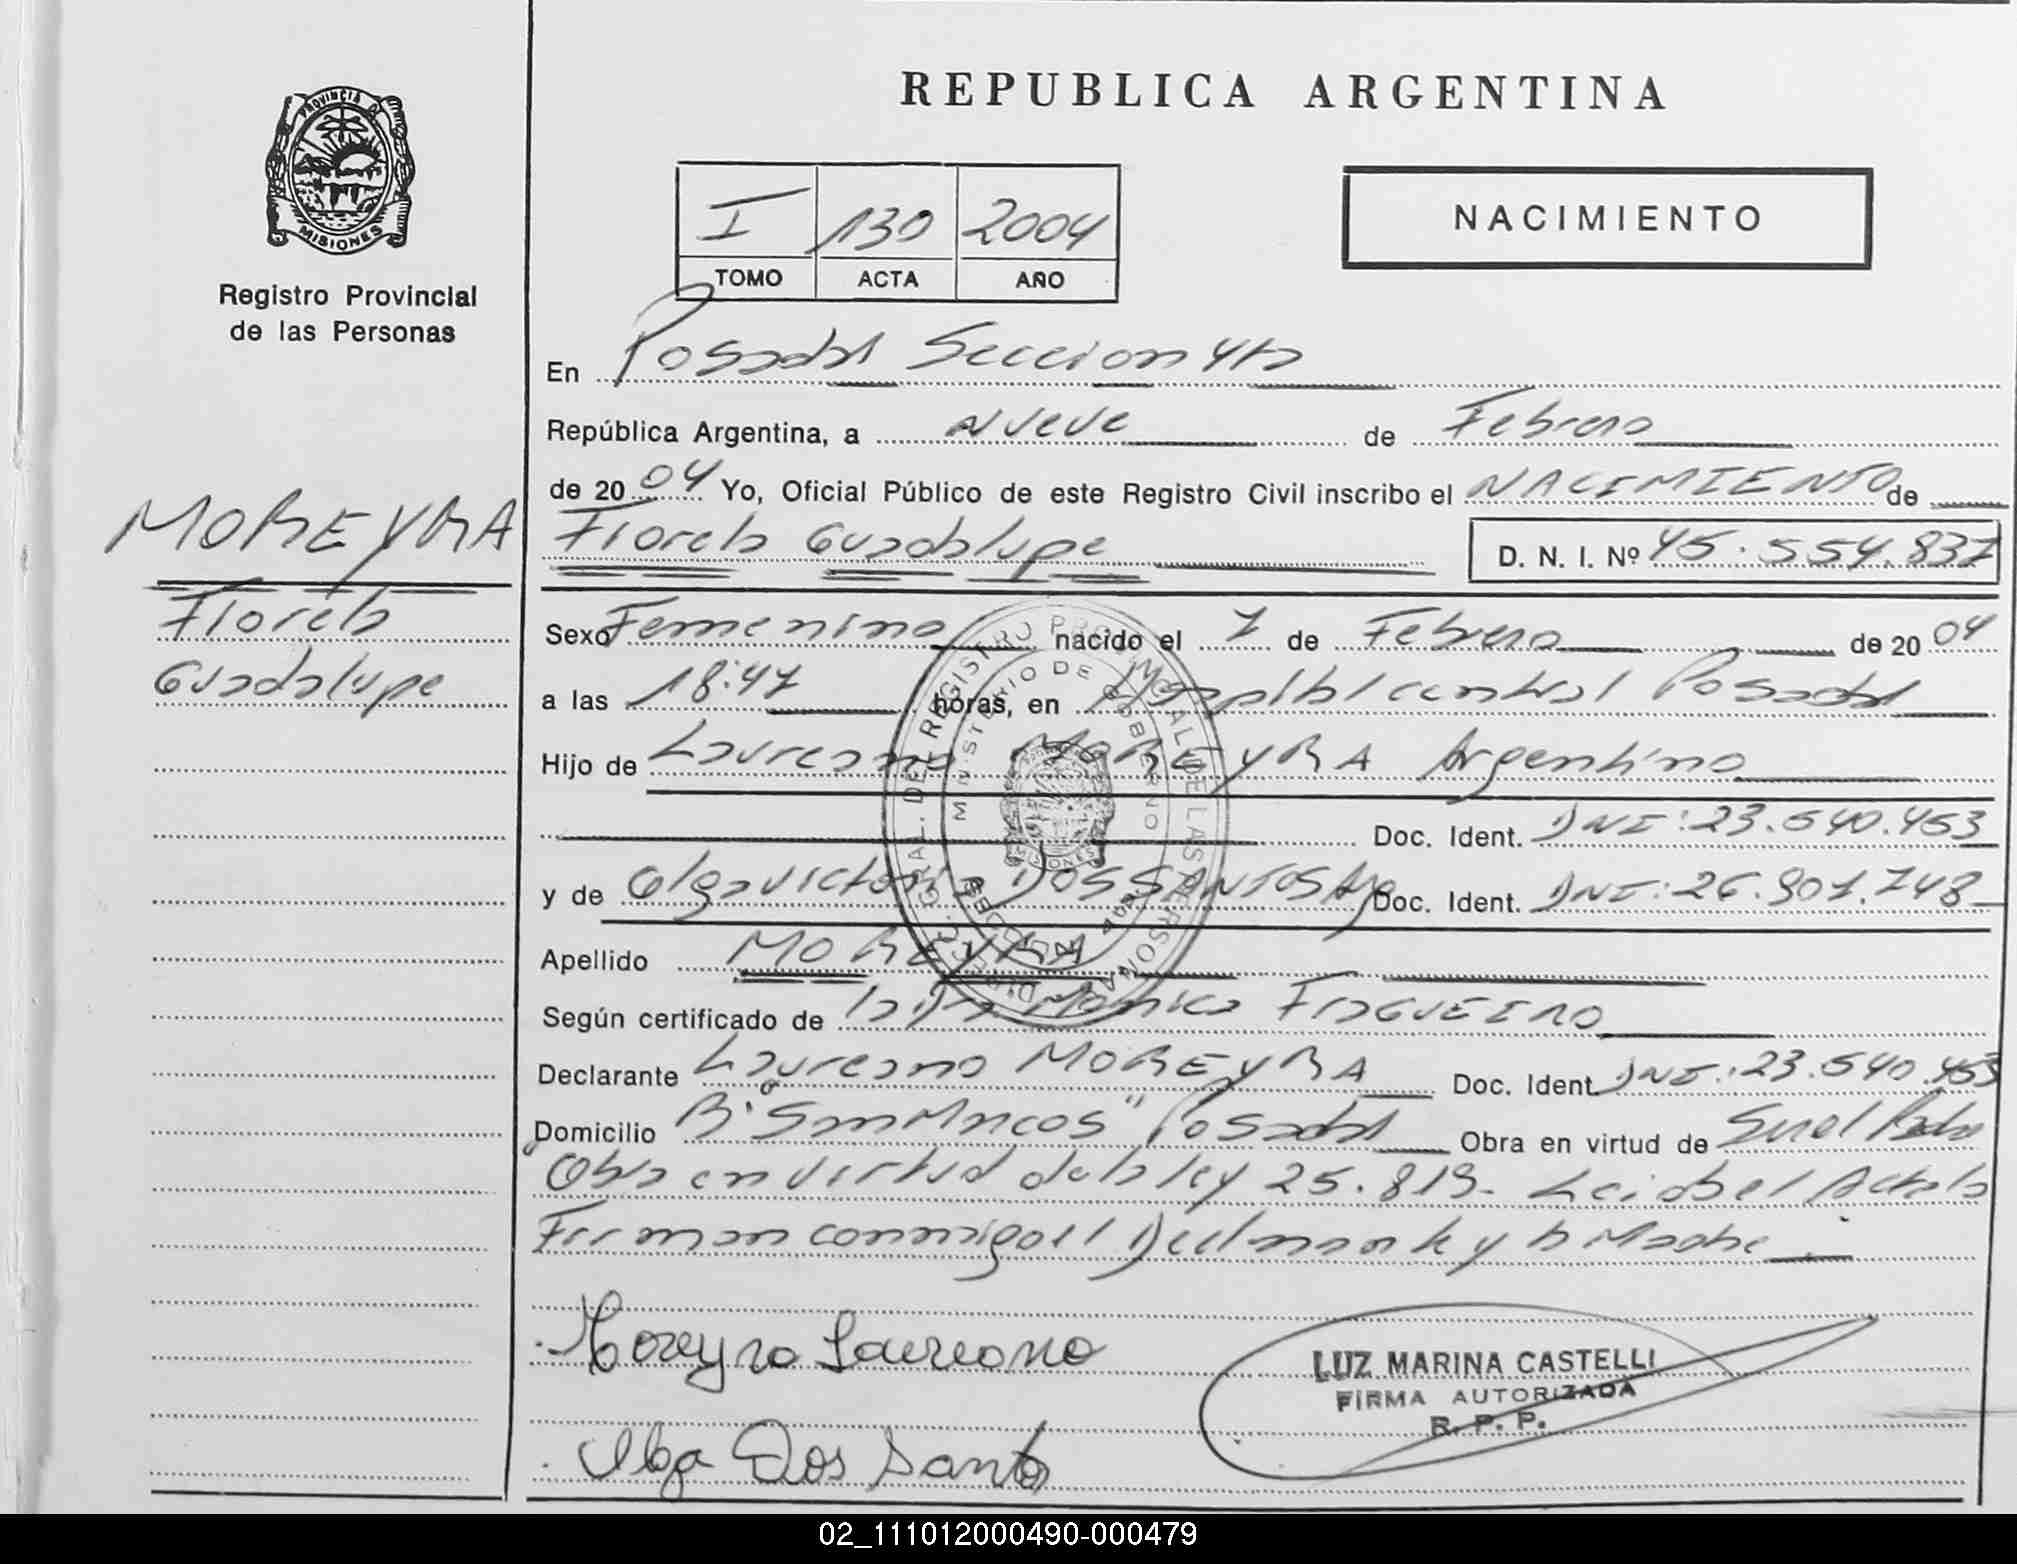 PROVINCIA DE
MISIONES
Registro Provincial
de las Personas
REPUBLICA ARGENTINA
NACIMIENTO
I 130 2004
TOMO ACTA AÑO
En Posadas Seccion 4ta
República Argentina, a Nueve de Febrero
de 2004 Yo, Oficial Público de este Registro Civil inscribo el NACIMIENTO de
MOREYRA
Fiorela Guadalupe D. N. I. Nº 45.554.837
Fiorela
Guadalupe
Sexo Femenino nacido el 7 de Febrero de 2004
a las 18:47 horas, en Hospital central Posadas
Hijo de Laureano MOREYRA Argentino
Doc. Ident. DNI: 23.540.453
y de Olga victoria DOS SANTOS Arg Doc. Ident. DNI: 26.901.748
Apellido MOREYRA
Según certificado de la Dra Monica FIAGUEIRO
Declarante Laureano MOREYRA Doc. Ident DNI: 23.540.453
Domicilio Bº "San Marcos" Posadas Obra en virtud de Ser el Padre
Obra en virtud de la ley 25.819- Leida el Acta la
Firman conmigo el Declarante y la Madre
Moreyra Laureano
Olga Dos Santos
LUZ MARINA CASTELLI
FIRMA AUTORIZADA
R. P. P.
DIREC. GRAL. DE REGISTRO PROVINCIAL DE LAS PERSONAS
MINISTERIO DE GOBIERNO
MISIONES
02_111012000490-000479